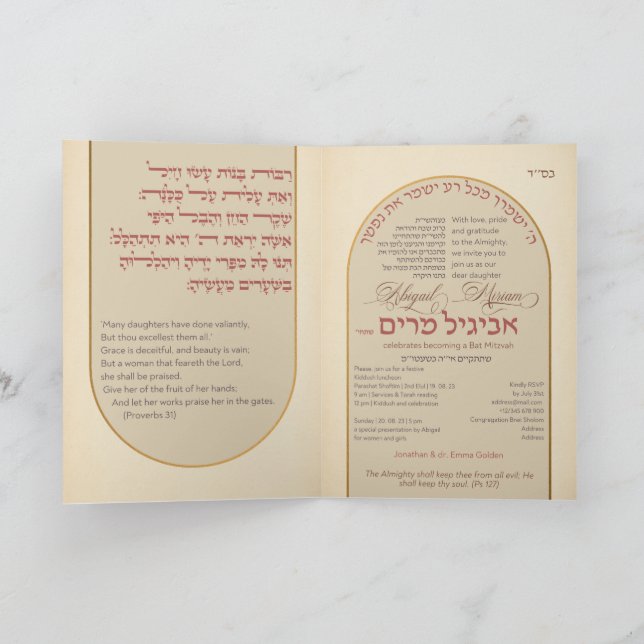 רַבּוֹת בָּנוֹת עָשׂוּ חָיִל
וְאַתְּ עָלִית עַל כֻּלָּנָה:
שֶׁקֶר הַחֵן וְהֶבֶל הַיֹּפִי
אִשָּׁה יִרְאַת ה' הִיא תִתְהַלָּל:
תְּנוּ לָהּ מִפְּרִי יָדֶיהָ וִיהַלְלוּהָ
בַשְּׁעָרִים מַעֲשֶׂיהָ:
'Many daughters have done valiantly,
But thou excellest them all.'
Grace is deceitful, and beauty is vain;
But a woman that feareth the Lord,
she shall be praised.
Give her of the fruit of her hands;
And let her works praise her in the gates.
(Proverbs 31)
בס''ד
ה' ישמרך מכל רע ישמר את נפשך
בעזהשי''ת
ברוב שמחה והודיה
להשי''ת שהחיינו
וקיימנו והגיענו לזמן הזה
מתכבדים אנו להזמין את
כבודכם להשתתף
בשמחת הבת מצוה של
בתנו היקרה
With love, pride
and gratitude
to the Almighty,
we invite you to
join us as our
dear daughter
Abigail Miriam
אביגיל מרים שתחי'
celebrates becoming a Bat Mitzvah
שתתקיים אי''ה בשעטו''מ
Please, join us for a festive
Kiddush luncheon
Parashat Shoftim | 2nd Elul | 19. 08. 23
9 am | Services & Torah reading
12 pm | Kiddush and celebration
Sunday | 20. 08. 23 | 5 pm
a special presentation by Abigail
for women and girls
Kindly RSVP
by July 31st
address@mail.com
+12/345 678 900
Congregation Bnei Sholom
Address
Address
Jonathan & dr. Emma Golden
The Almighty shall keep thee from all evil; He
shall keep thy soul. (Ps 127)